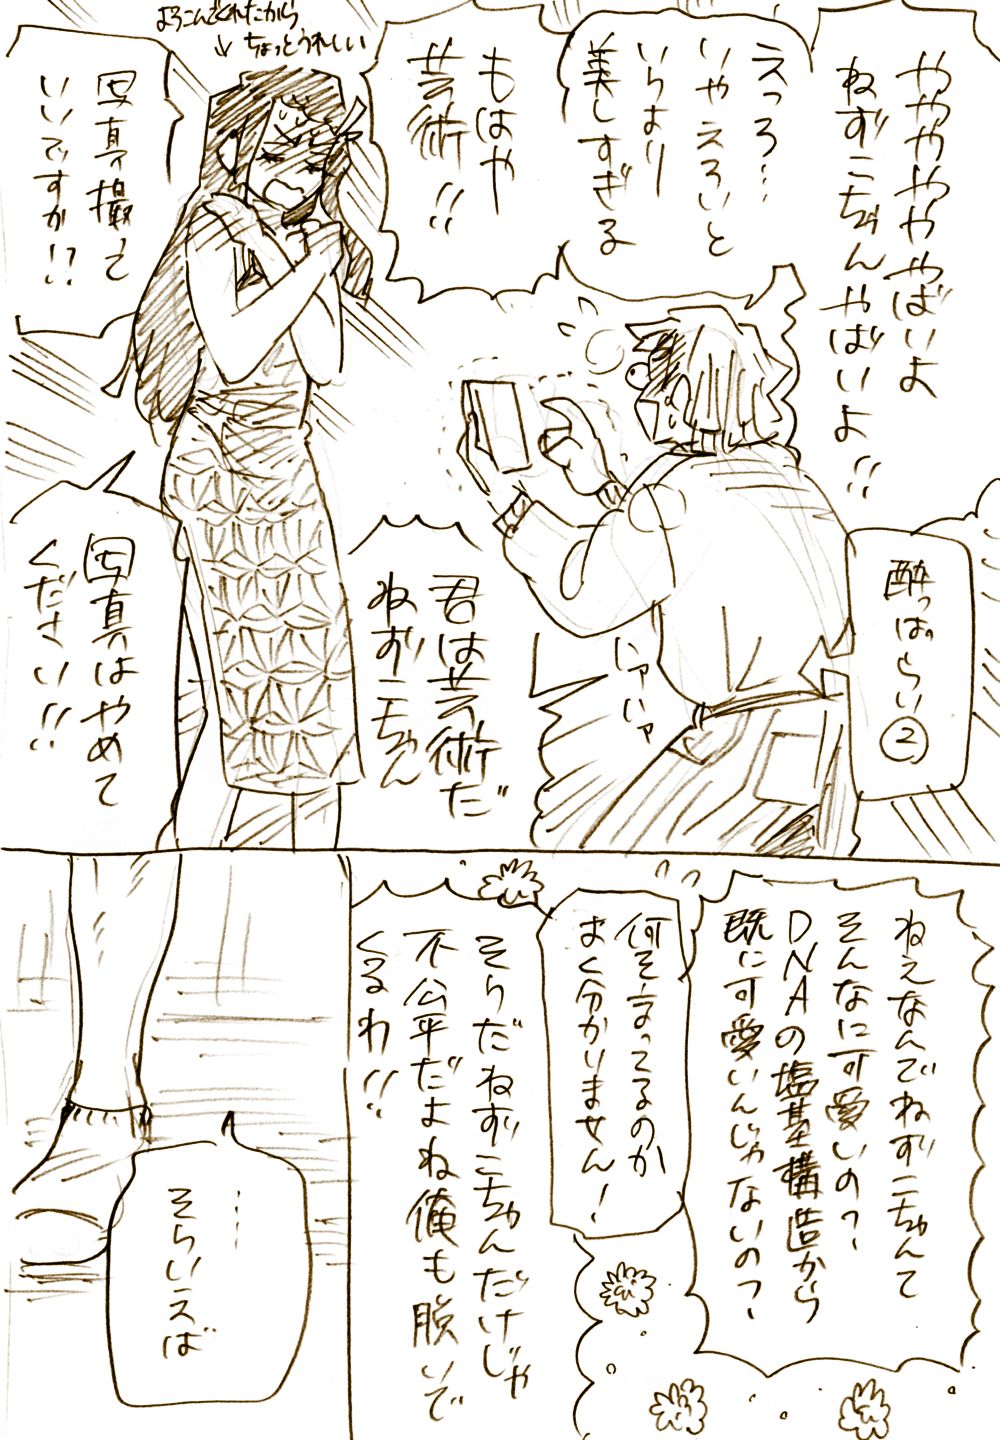 ややややややばいよ
ねずこちゃんやばいよ!!
えっろ…
いやえろいと
いうより
美しすぎる
もはや
芸術!!
よろこんでくれたから
ちょっとうれしい
写真撮って
いいですか!?
酔っぱらい②
君は芸術だ
ねずこちゃん
ハァハァ
写真はやめて
ください!!
ねえなんでねずこちゃんて
そんなに可愛いの?
DNAの塩基構造から
既に可愛いんじゃないの?
何そ言ってるのか
よく分かりません!
そうだねずこちゃんだけじゃ
不公平だよね俺も脱いで
くるわ!!
……
そういえば